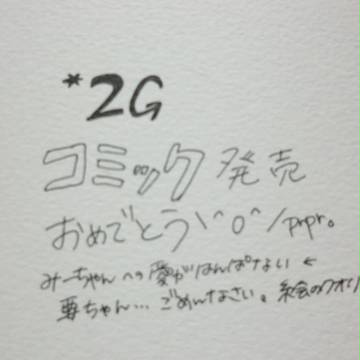 *2G
コミック発売
おめでとう\^o^/prpr。
みーちゃんへの愛がはんぱない←
要ちゃん…ごめんなさい。絵のクオリ